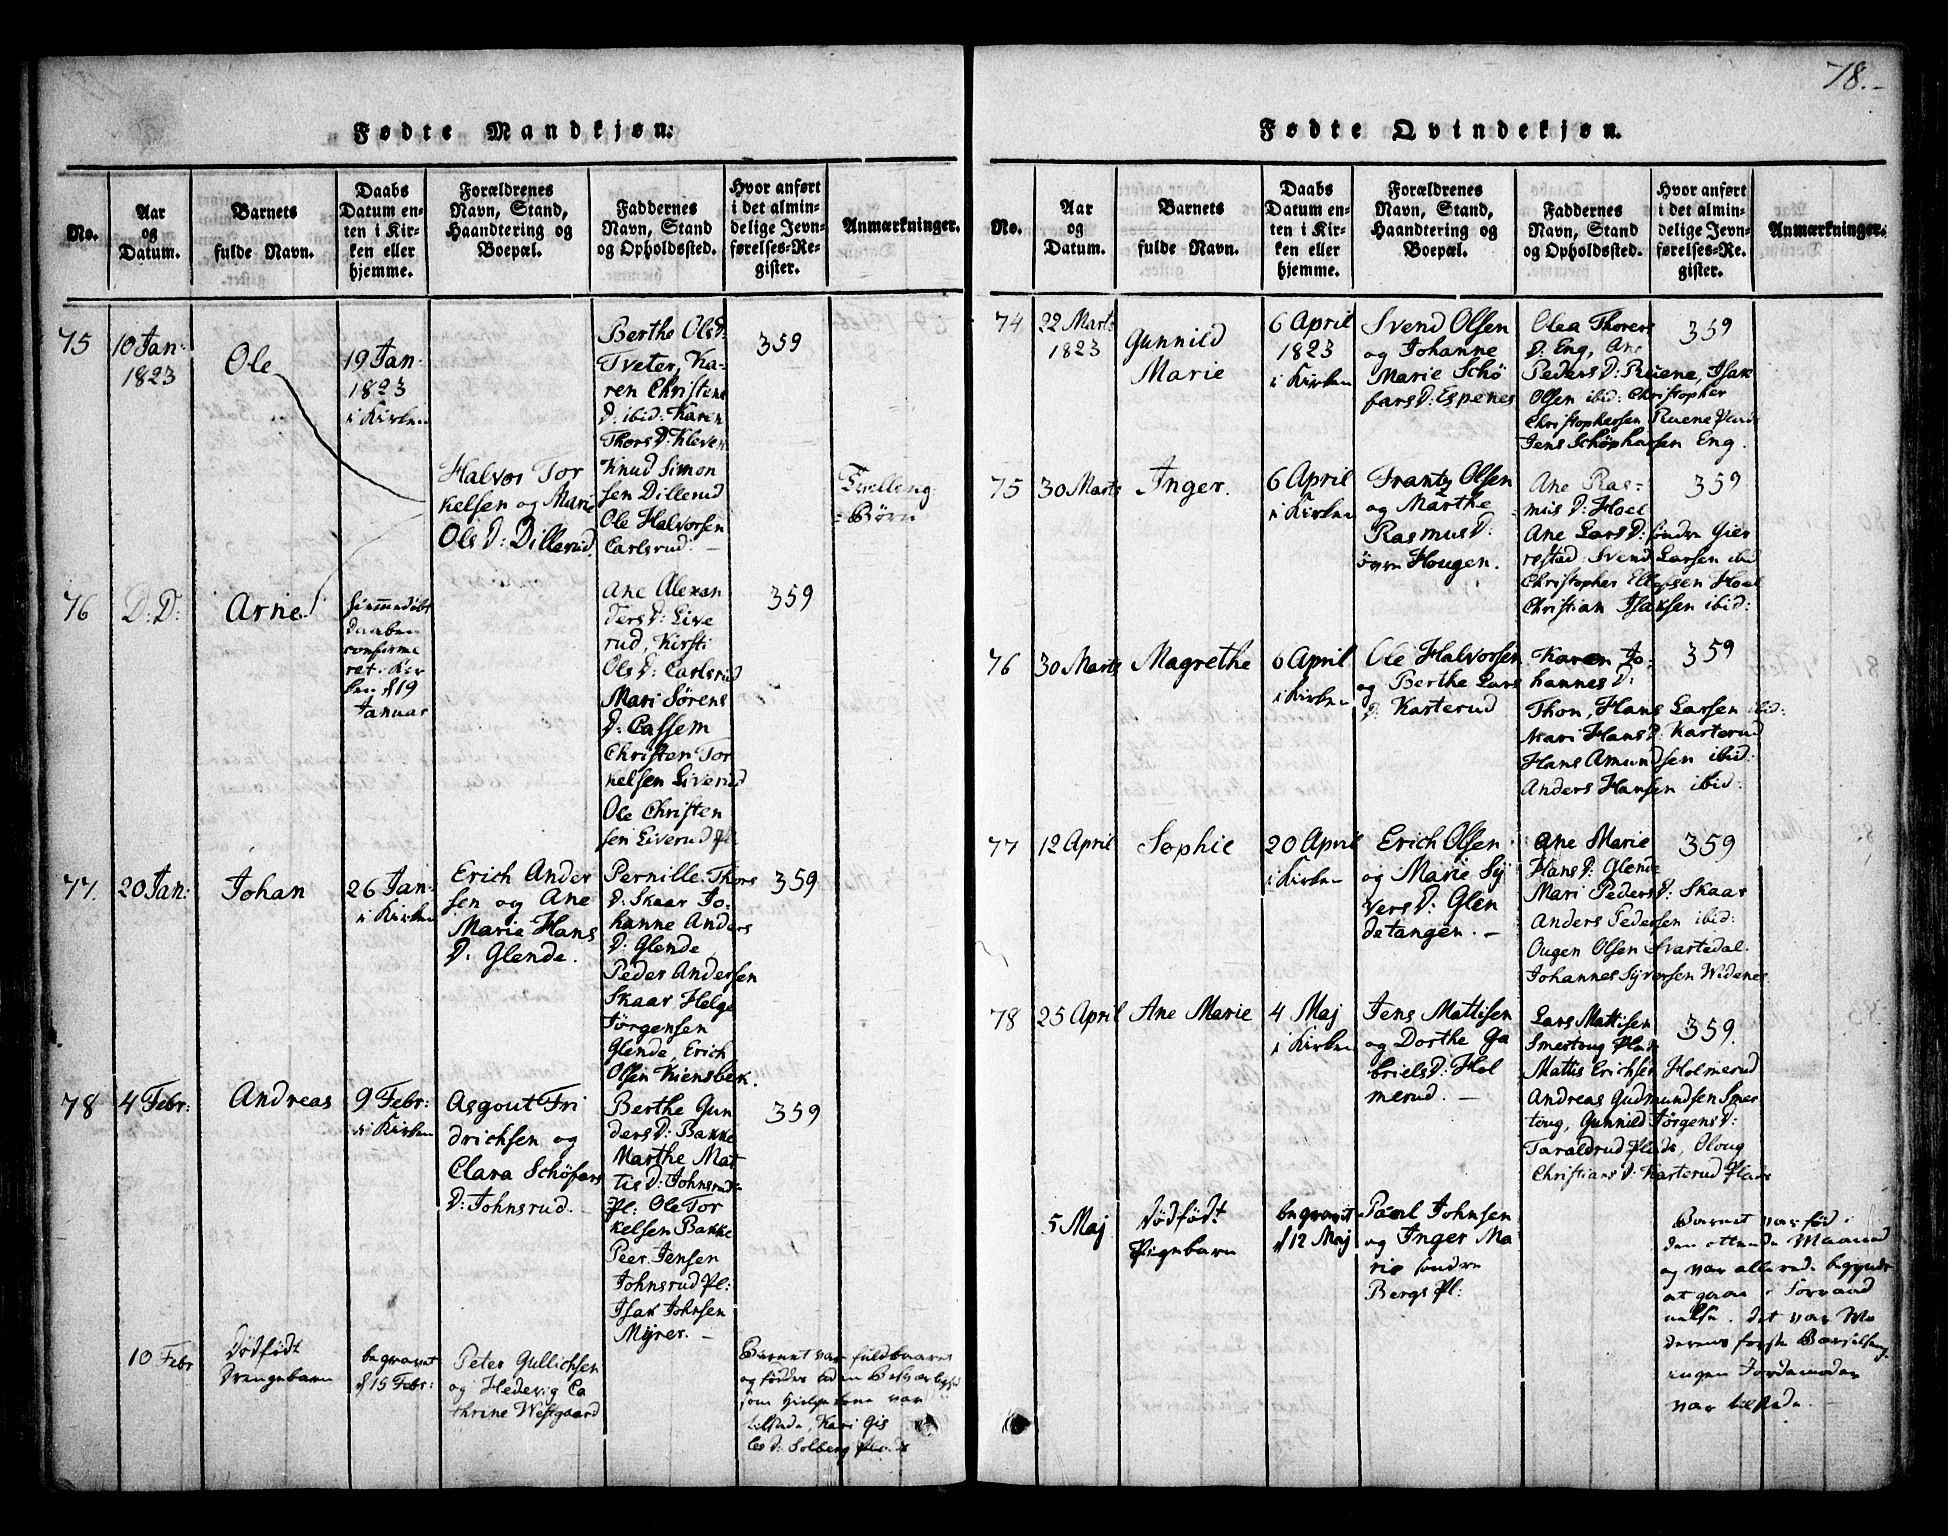 78.-
Fødte Mandkjøn.
No.
Aar
og
Datum.
Barnets
fulde Navn.
Daabs
Datum en-
ten i Kir-
ken eller
hjemme.
Forældrenes
Navn, Stand,
Haandtering og
Boepæl.
Faddernes
Navn, Stand
og Opholdssted.
Hvor anført
i det almin-
delige Jevn-
førelses-Re-
gister.
Anmærkninger.
75
10 Jan:
1823
Ole
19 Jan:
1823
i Kirken
Halvor Tor
kelsen og Marie
Ols D: Dillerud.
Berthe Ols D:
Tveter, Ka-
ren Christens
D: ibid: Karen
Thors D: Kleven
Knud Simon
sen Dillerud
Ole Halvorsen
Carlsrud. —
359
Tvilling
Børn
76
D: D:
Arne
hjemmedøbt
Daaben
confirme
ret i Kir
ken d 19
Januar
Ane Alexan
ders D: Live
rud, Kirsti
Ols D: Carlsrud
Mari Sørens
D: Cassem
Christen Tor
kelsen Liverud
Ole Christen
sen Liverud pl.
359
77.
20 Jan:
Johan
26 Jan:
i Kirken
Erich Ander
sen og Ane
Marie Hans
D: Glende.
Pernille Thors
D: Skaar Jo-
hanne Anders
D: Glende
Peder Andersen
Skaar Helge
Jørgensen
Glende, Erich
Olsen Kiensbek.
359
78
4 Febr:
Andreas
9 Febr:
i Kirken
Asgout Fri
drichsen og
Clara Schöfars
D: Johnsrud.
Berthe Gun
ders D: Bakke
Marthe Mat
tis D: Johnsrud
Pl: Ole Tor
kelsen Bakke
Peer Jensen
Johnsrud Pl:
Isak Johnsen
Myrer. —
359
10 Febr
Dödfödt
Drengebarn
begravet
d 15 Febr:
Peter Gullichsen
og Hedevig Ca
thrine Westgaard
Barnet var fuldbaaret
og föddes uden Besværlighed
som Hielpekone var
tilstede, Kari Gis
les D: Solberg Plads
Fødte Qvindekjøn.
No.
Aar
og
Datum.
Barnets
fulde Navn.
Daabs
Datum en-
ten i Kir-
ken eller
hjemme.
Forældrenes
Navn, Stand,
Haandtering og
Boepæl.
Faddernes
Navn, Stand
og Opholdssted.
Hvor anført
i det almin-
delige Jevn-
førelses-Re-
gister.
Anmærkninger.
74
22 Marts
1823
Gunnild
Marie
6 April
1823
i Kirken
Svend Olsen
og Johanne
Marie Schö
fars D: Espenes
Olea Thorers
D: Eng, Ane
Peders D: Ruene, Isak
Olsen ibid: Christopher
Christophersen Ruene
Jens Schöpharsen Eng.
359
75
30 Marts
Inger.
6 April
i Kirken
Frantz Olsen
og Marthe
Rasmus D:
övre Hougen.
Ane Ras-
mus D: Hoel
Ane Lars D: söndre Gier
restad. Svend Larsen ibid
Christopher Ellefsen Hoel
Christian Isaksen ibid:
359
76
30 Marts
Magrethe
6 April
i Kirken
Ole Halvorsen
og Berthe Lars
D: Karterud
Karen Jo-
hannes D:
Thon, Hans Larsen ibid:
Mari Hans D: Karterud
Hans Amundsen ibid:
Anders Hansen ibid:
359
77
12 April
Sophie
20 April
i Kirken
Erich Olsen
og Marie Sy
vers D: Glen
detangen. —
Ane Marie
Hans D: Glende
Mari Peders D: Skaar
Anders Pedersen ibid:
Ougen Olsen Svartedal.
Johannes Syversen Widenes
359
78
25 April
Ane Marie
4 Maj
i Kirken
Jens Mattisen
og Dorthe Ga
briels D: Hol
merud. —
Lars Mattisen
Smertoug Plads
Mattis Erichsen Holmerud
Andreas Gudmundsen Smer
toug, Gunnild Jørgens D:
Taraldrud Plads, Oloug
Christians D: Karterud Plads
359.
5 Maj
Dödfödt
Pigebarn
begravet
d 12 Maj
Paul Johnsen
og Inger Ma
rie söndre
Bergs Pl:
Barnet var fød i
den ottende Maaned
og var allerede begyndt
at gaae i Forraad
nelse. det var Mo
derens første Barselseng
ingen Jordemoder
var tilstede.